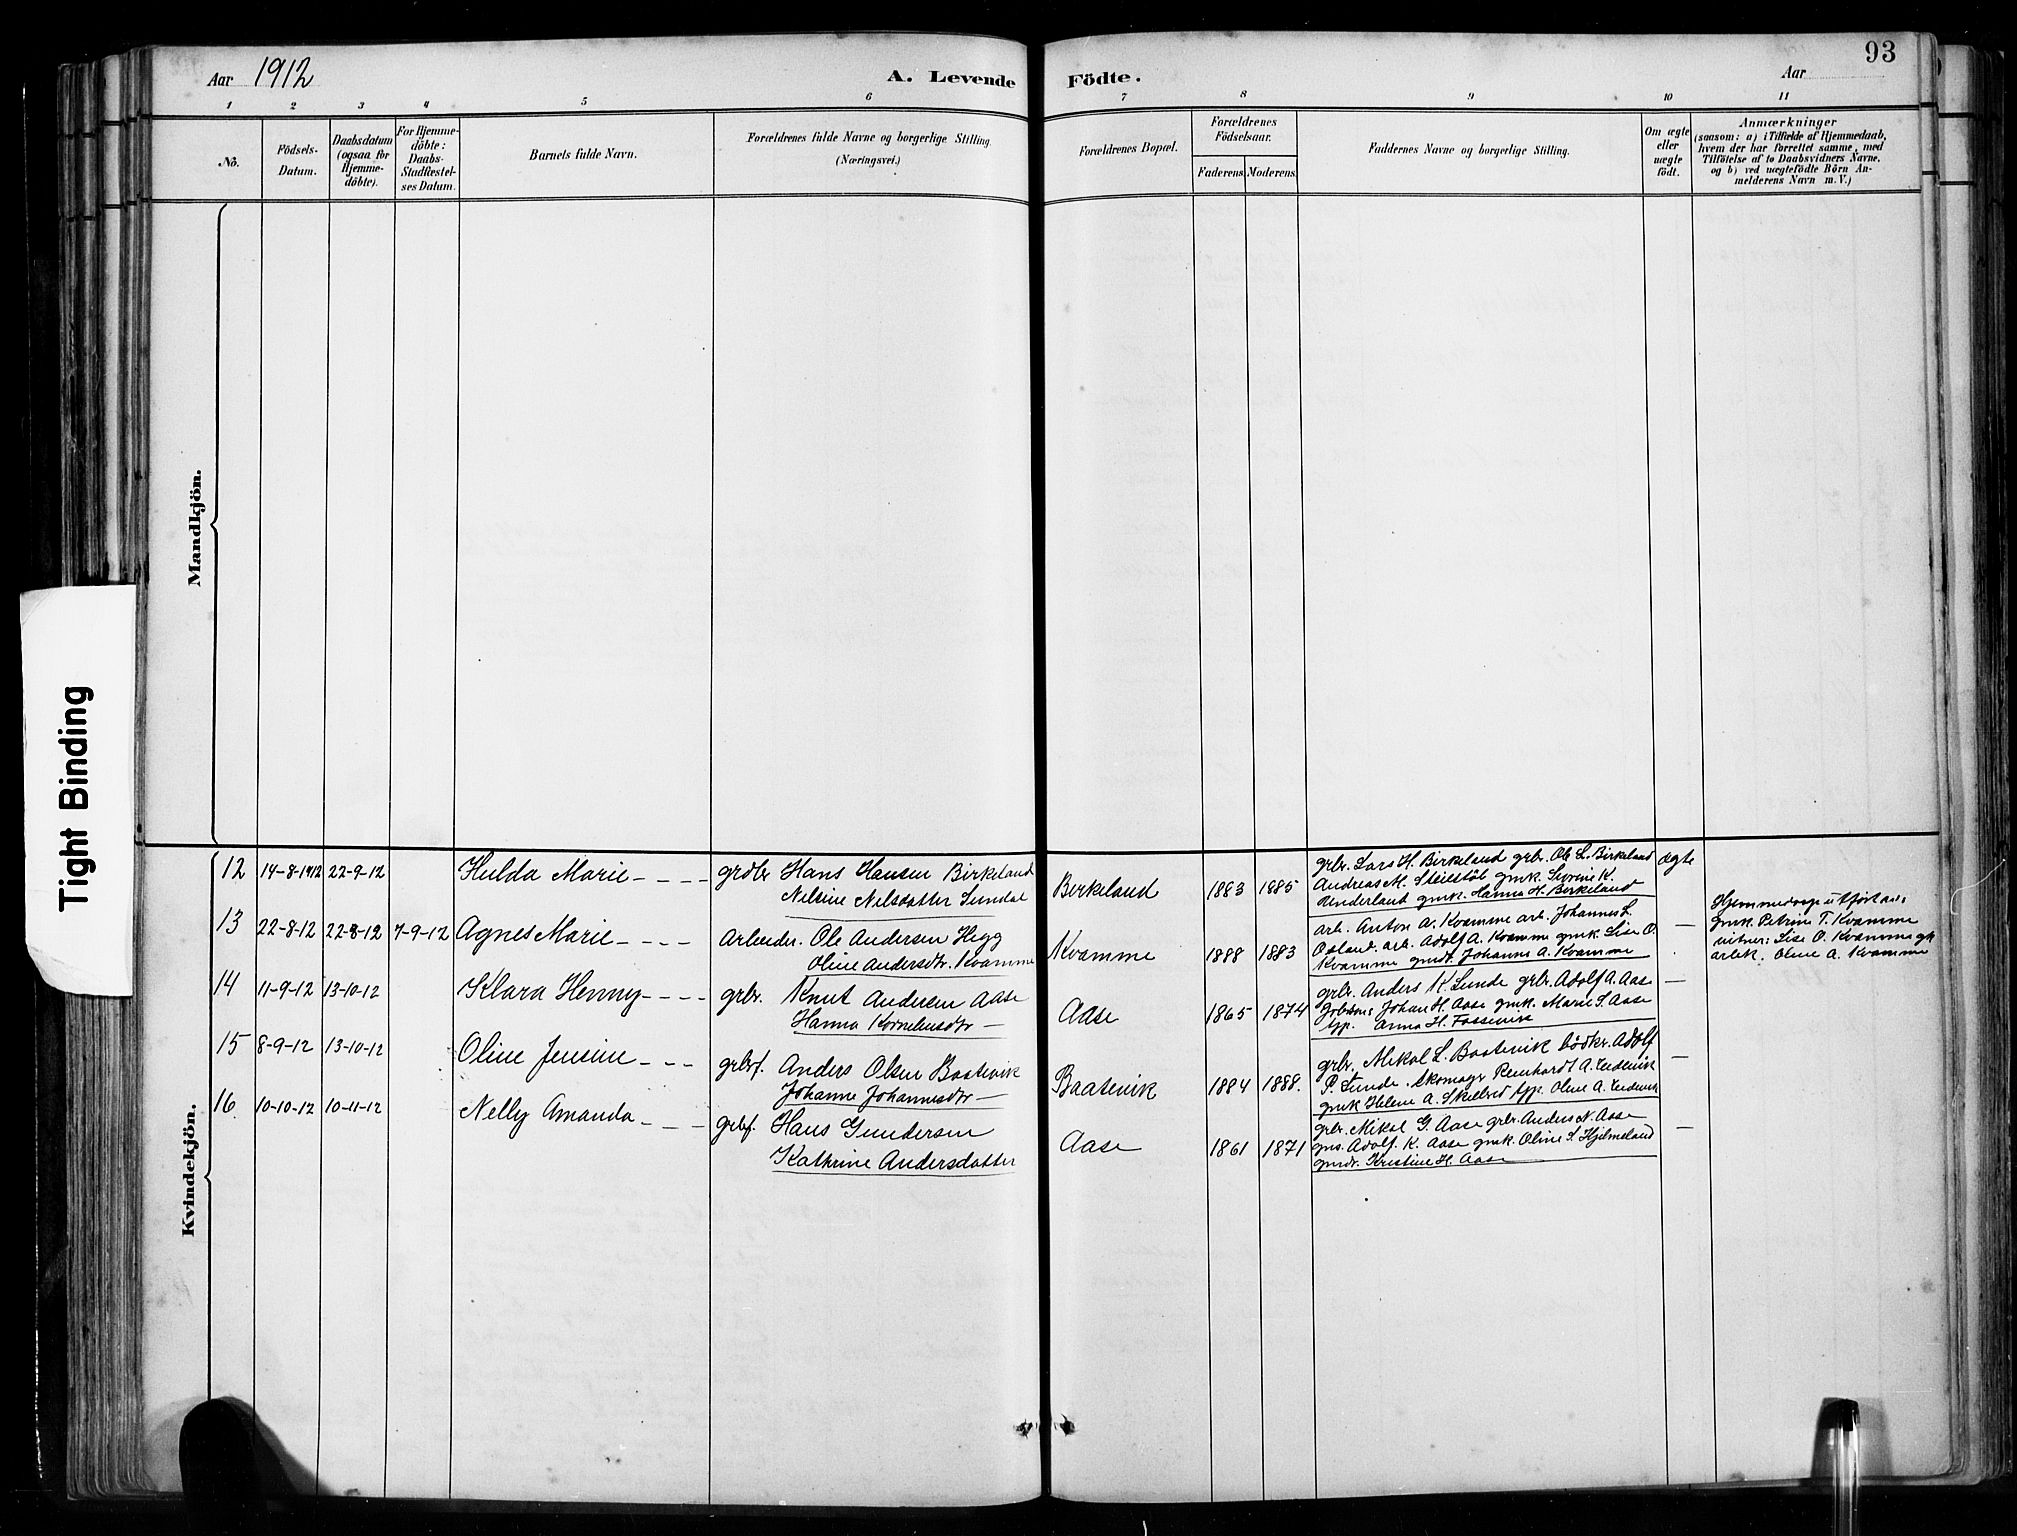 93
Aar 1912
A. Levende Födte.
Aar
1 2 3 4 5 6 7 8 9 10 11
No.
Födsels-
Datum.
Daabsdatum
(ogsaa for
Hjemme-
döbte).
For Hjemme-
döbte:
Daabs-
Stadfæstel-
ses Datum.
Barnets fulde Navn.
Forældrenes fulde Navne og borgerlige Stilling.
(Næringsvei.)
Forældrenes Bopæl.
Forældrenes
Födselsaar.
Faderens
Moderens
Faddernes Navne og borgerlige Stilling.
Om ægte
eller
uægte
födt.
Anmærkninger
(saasom: a) i Tilfælde af Hjemmedaab,
hvem der har forrettet samme, med
Tilföielse af to Daabsvidners Navne.
og b) ved uægtefödte Börn An-
melderens Navn m. V.)
Mandkjön.
Tight Binding
Kvindekjön.
12 14-8-1912 22-9-12 Hulda Marie - - - - grdbr Hans Hansen Birkeland
Nelsine Nelsdatter Sundal
Birkeland 1883 1885
grbr. Lars H. Birkeland grbr. Ole L. Birkeland
Andreas M. gmk.
gmk. Hanna H. Birkeland
ægte
13 22-8-12 22-8-12 7-9-12 Agnes Marie - - - - Arbeider. Ole Andersen Hegg
Oline Andersdtr. Kvamme
Kvamme 1888 1883
arb. Anton A. Kvamme arb. Johannes L.
Osland. arb. Adolf A. Kvamme gmk. Lise O.
Kvamme gmdt. Johanne A. Kvamme
—
Hjemmedaap utfört av:
gmk. Petrine T. Kvamme
vitner: Lise O. Kvamme
Oline A. Kvamme
14 11-9-12 13-10-12 Klara Henny - - - - grbr. Knut Andersen Aase
Hanna Korneliusdtr —
Aase 1865 1874
grbr. Anders K. Lunde grbr. Adolf A. Aase
Johan H. Aase gmk. Marie S. Aase
Anna H. Fossevik
—
15 8-9-12 13-10-12 Oline Jensine - - - grbrf. Anders Olsen Baatevik
Johanne Johannesdtr —
Baatevik 1884 1888.
grbr. Mikal L. Baatevik bödkr. Adolf
P. Lunde. Skomagr Reinhardt A.
gmk Helene A. Oline A.
—
16 10-10-12 10-11-12 Nelly Amanda - - - grbf. Hans Gundersen
Kathrine Andersdatter
Aase 1861 1871
grbr. Mikal G. Aase grbr. Anders N. Aase
gns. Adolf K. Aase gmk. Oline S. Hjelmeland
gmdt. Kristine H. Aase
—